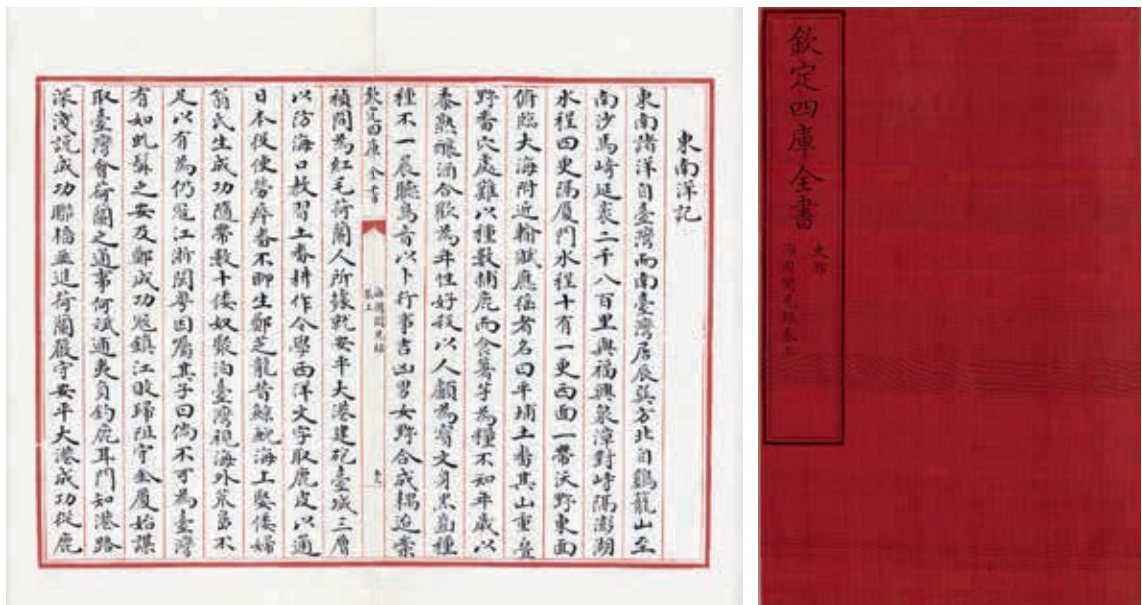 東南洋記
東南諸洋自臺灣而南臺灣居辰巽方北自雞籠山至
南沙馬崎延袤二千八百里與福興泉漳對峙隔澎湖
水程四更隔厦門水程十有一更西面一帶沃野東面
俯臨大海附近輸賦應徭者名曰平埔土番其山重疊
野番穴處難以種數捕鹿而食薯芋為糧不知年歲以
黍熟釀酒合歡為年性好殺以人顱為寶文身黑齒種
種不一晨聽鳥音以卜行事吉凶男女野合成耦迨崇
欽定四庫全書
海國聞見錄
卷上
禎間為紅毛荷蘭人所據就安平大港建砲臺城三層
以防海口教習土番耕作令學西洋文字取鹿皮以通
日本役使勞瘁番不聊生鄭芝龍昔鯨鯢海上娶倭婦
翁氏生成功隨帶數十倭奴聚泊臺灣視海外荒島不
足以有為仍寇江浙閩粤因屬其子曰倘不可為臺灣
有如虬髯之安及鄭成功寇鎮江敗歸阻守金厦始謀
取臺灣會荷蘭之通事何斌逋夷負釣鹿耳門知港路
深淺說成功聯檣並進荷蘭嚴守安平大港成功從鹿
欽定四庫全書
史部
海國聞見錄卷上